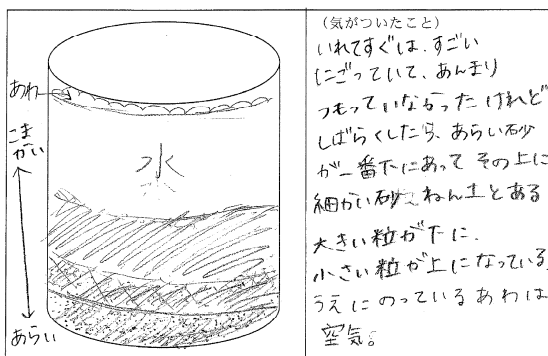 あわ
こま
がい
水
あらい
(気がついたこと)
いれてすぐは、すごい
にごっていて、あんまり
つもっていなかったけれど
しばらくしたら、あらい砂
が一番下にあって その上に
細かい砂、ねん土とある
大きい粒が下に、
小さい粒が上になっている。
うえにのっているあわは
空気。